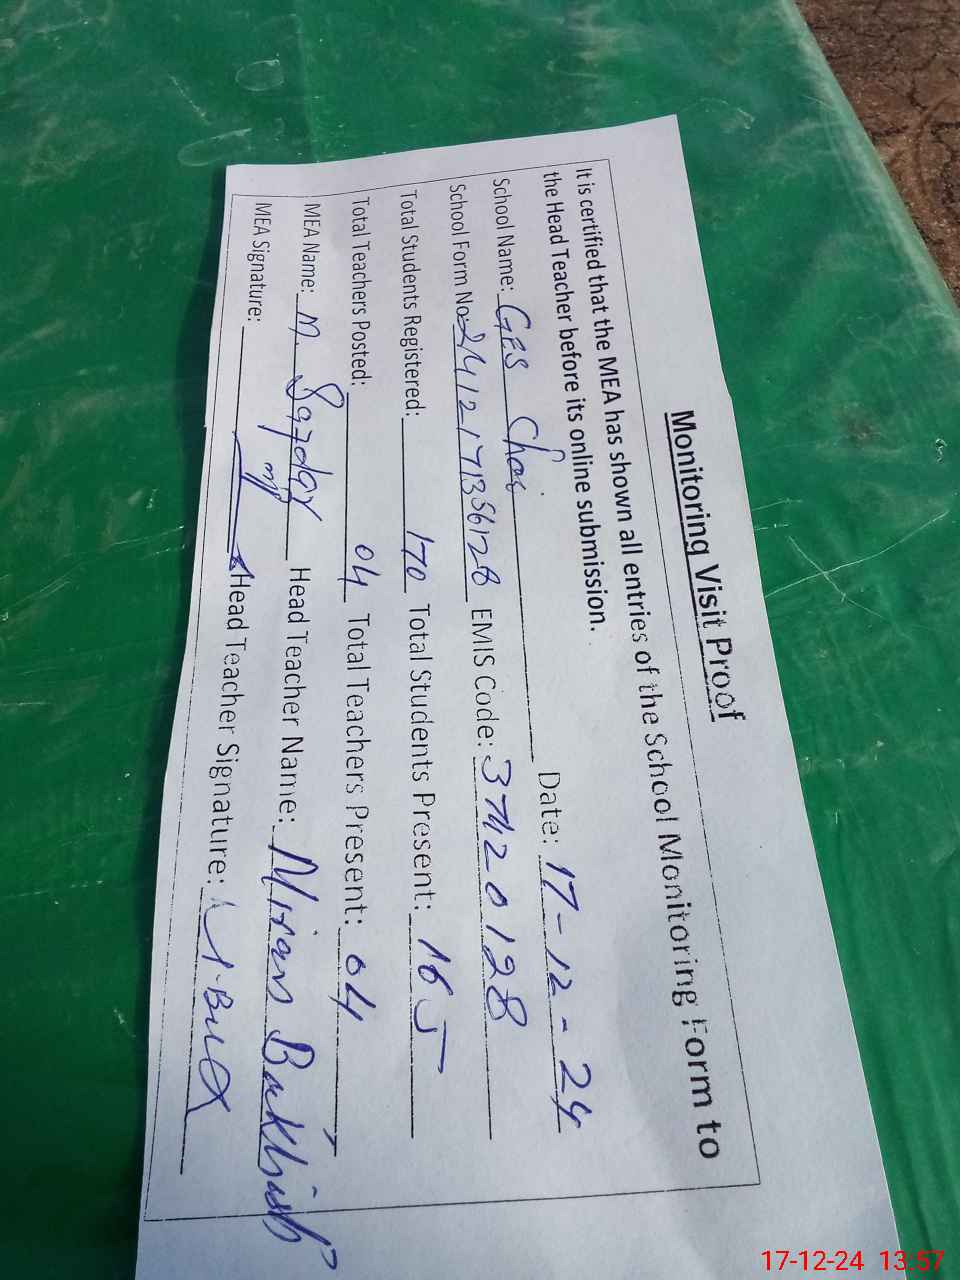 Monitoring Visit Proof
It is certified that the MEA has shown all entries of the School Monitoring Form to
the Head Teacher before its online submission.
School Name: GES Date: 17-12-24
School Form No: EMIS Code: 37120128
Total Students Registered: 170 Total Students Present: 165
Total Teachers Posted: 04 Total Teachers Present: 04
MEA Name: M. Head Teacher Name: Bakhish
MEA Signature: Head Teacher Signature:
17-12-24 13:57